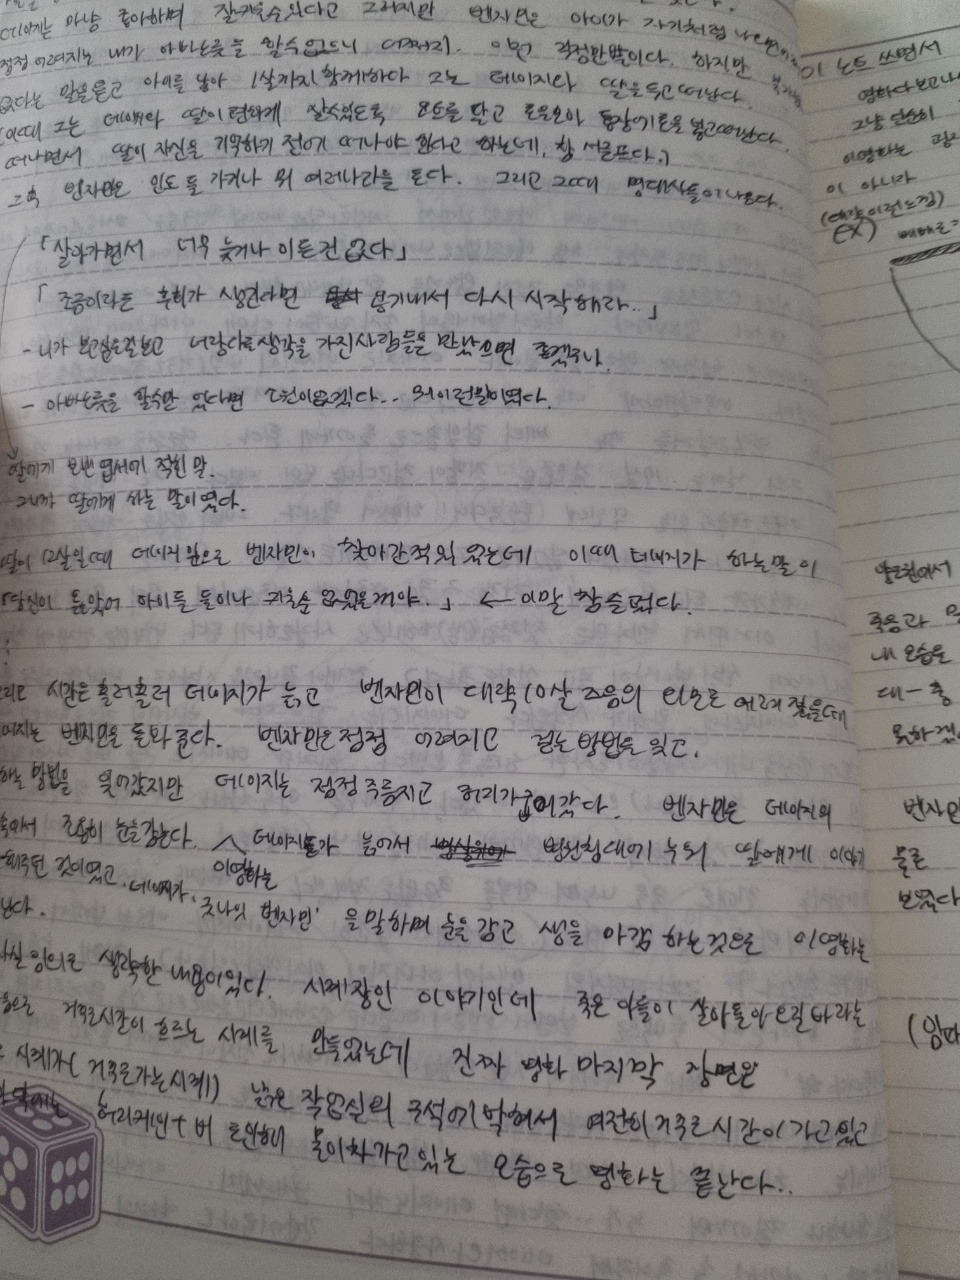 데이지는 마냥 좋아하며 잘키울수있다고 그러지만 벤자민은 아이가 자기처럼
점점 어려지는 내가 아빠노릇을 할수없으니 걱정만한다. 하지만
없다는 말을듣고 아이를 낳아 1살까지 함께하다 그는 데이지와 딸을두고 떠났다.
(이때 그는 데이지와 딸이 편하게 살수있도록 통장에 돈을 넣고떠난다.
떠나면서 딸이 자신을 기억하기 전에 떠나야 한다고 하는데, 참 서글프다.)
그후 벤자민은 인도 등 가거나 뭐 여러나라를 돈다. 그리고 그때 명대사들이나온다.
「살아가면서 너무 늦거나 이른건 없다」
「조금이라도 후회가 생긴다면 용기내서 다시 시작해라..」
- 니가 보고싶은걸보고 너랑다른생각을 가진사람들을 만났으면 좋겠구나.
- 아빠노릇을 할수만 있다면 소원이없겠다.. 뭐이런말이였다.
딸에게 보낸 엽서에 적힌 말.
그니까 딸에게 하는 말이였다.
딸이 12살일때 데이지 앞으로 벤자민이 찾아간적이 있는데 이때 데이지가 하는말이
「당신이 옳았어 아이를 둘이나 키울순 없었을꺼야.」 ← 이말 참슬펐다.
그리고 시간은 흘러흘러 데이지가 늙고 벤자민이 대략 10살 즈음의 외모로 어려 졌을때
데이지는 벤자민을 돌봐준다. 벤자민은점점 어려지고 걷는 방법을 잊고,
말하는 방법을 잊어갔지만 데이지는 점점 주름지고 허리가굽어갔다. 벤자민은 데이지의
품에서 조용히 눈을감는다. 이영화는 데이지가 늙어서 병원침대에 누워 딸에게 이야기
해주던 것이였고, 데이지가 '굿나잇 벤자민' 을말하며 눈을 감고 생을 마감 하는것으로 이영화는
끝난다.
생각한 내용이있다. 시계장인 이야기인데 죽은 아들이 살아돌아오길바라는
마음으로 거꾸로시간이 흐르는 시계를 만들었는데 진짜 영화 마지막 장면은
그 시계가(거꾸로가는시계) 낡은 작업실의 구석에 박혀서 여전히거꾸로시간이가고있고
허리케인 물이차가고있는 모습으로 영화는 끝난다..
이 노트 쓰면서
영화다보고나
그냥 단순히
이영화는
이 아니라
(대략이런느낌)
ex)
양로원에서
죽음과
내 모습을
대-충
못하겠
벤자민
물론
보였다